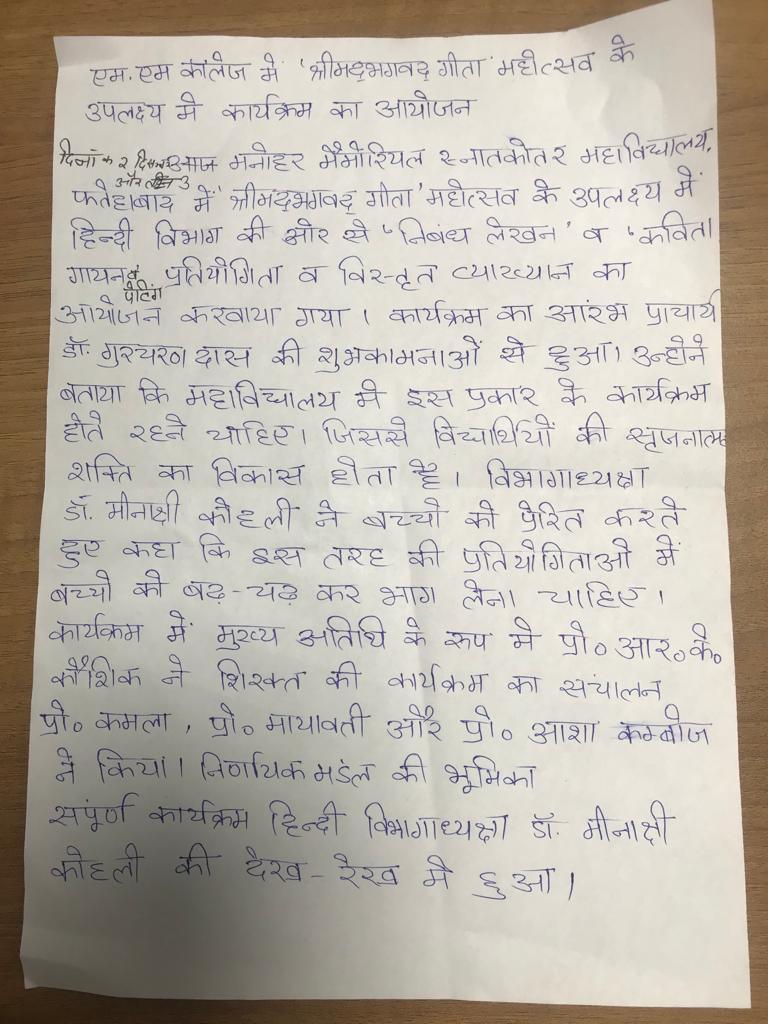 एम.एम कॉलेज में 'श्रीमद्भगवद् गीता' महोत्सव के
उपलक्ष्य में कार्यक्रम का आयोजन
दिनांक २ दिसम्बर आज मनोहर मैमोरियल स्नातकोतर महाविद्यालय,
और 3
फतेहाबाद में 'श्रीमद्भगवद् गीता' महोत्सव के उपलक्ष्य में
हिन्दी विभाग की ओर से 'निबंध लेखन' व 'कविता
गायन व प्रतियोगिता व विस्तृत व्याख्यान का
पेंटिंग
आयोजन करवाया गया। कार्यक्रम का आरंभ प्राचार्य
डॉ. गुरचरण दास की शुभकामनाओं से हुआ। उन्होने
बताया कि महाविद्यालय में इस प्रकार के कार्यक्रम
होते रहने चाहिए। जिससे विद्यार्थियों की सृजनात्म
शक्ति का विकास होता है। विभागाध्यक्षा
डॉ. मीनाक्षी कोहली ने बच्चो को प्रेरित करते
हुए कहा कि इस तरह की प्रतियोगिताओ में
बच्चो को बढ़-चढ़ कर भाग लेना चाहिए।
कार्यक्रम में मुख्य अतिथि के रूप मे प्रो० आर०के०
कौशिक ने शिरकत की कार्यक्रम का संचालन
प्रो० कमला, प्रो० मायावती और प्रो० आशा कम्बोज
ने किया। निर्णायक मडंल की भूमिका
संपूर्ण कार्यक्रम हिन्दी विभागाध्यक्षा डॉ. मीनाक्षी
कोहली की देख-रेख मे हुआ।